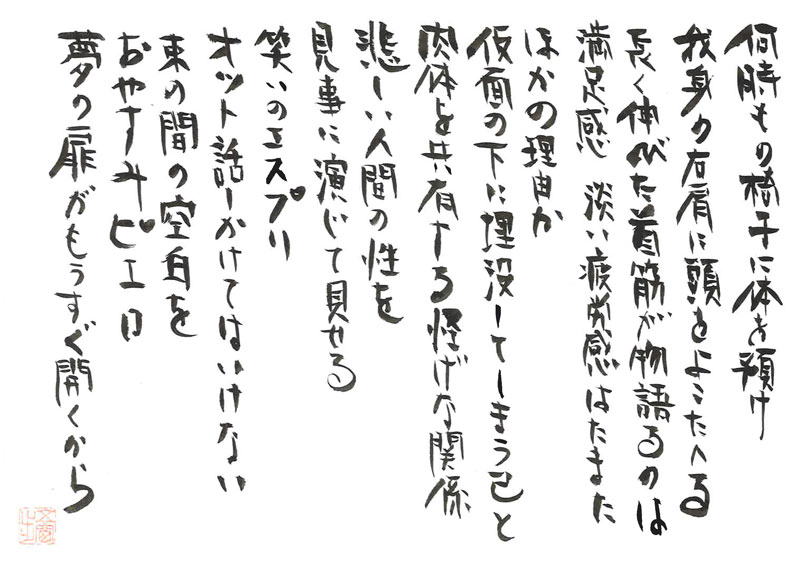 何時もの椅子に体を預け
我身の右肩に頭をよこたへる
長く伸びた首筋が物語るのは
満足感 淡い疲労感はたまた
ほかの理由か
仮面の下に埋没してしまう己と
肉体を共有する怪げな関係
悲しい人間の性を
見事に演じて見せる
笑いのエスプリ
オット話しかけてはいけない
束の間の空白を
おやすみピエロ
夢の扉がもうすぐ開くから